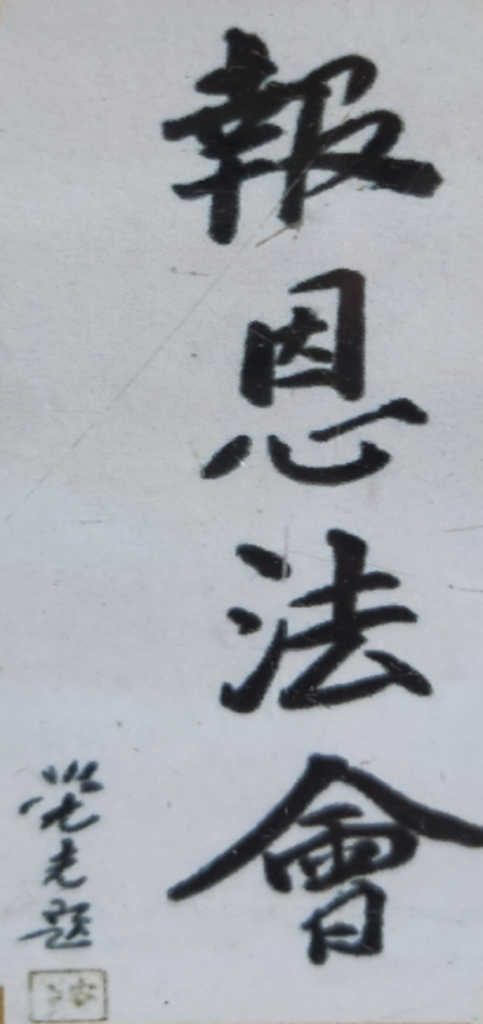 報恩法會
光題